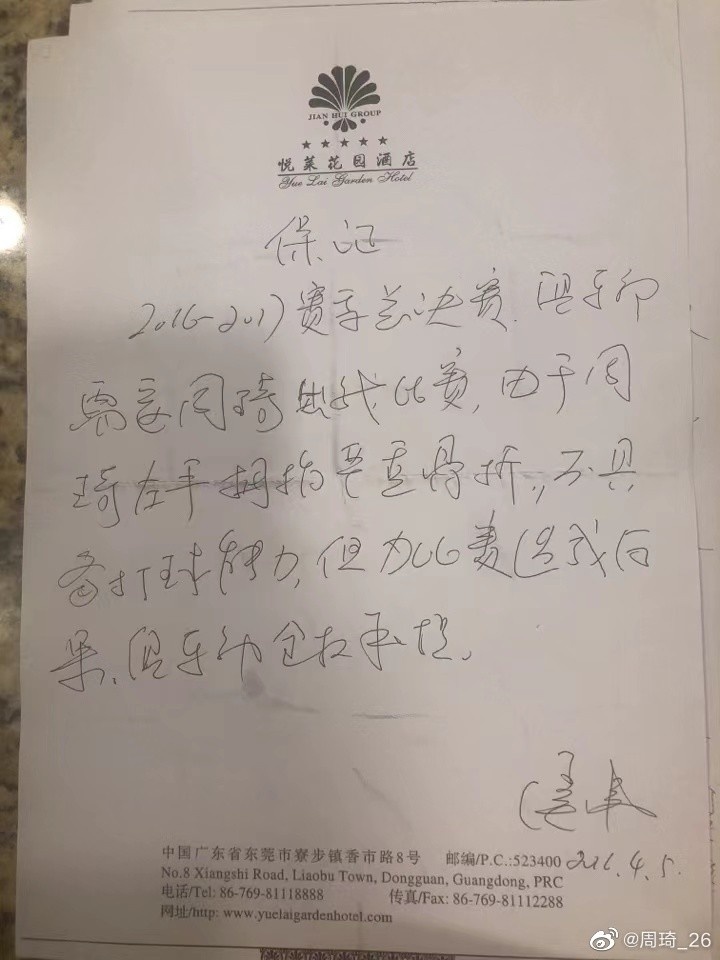 JIAN HUI GROUP
★★★★★
悦莱花园酒店
Yue Lai Garden Hotel
保证
2016-2017赛季总决赛.俱乐部
需要周琦出战比赛,由于周
琦左手拇指严重骨折,不具
备打球能力,但为比赛造成后
果.俱乐部全权承担.
中国广东省东莞市寮步镇香市路8号 邮编/P.C.:523400 2016.4.5.
No.8 Xiangshi Road, Liaobu Town, Dongguan, Guangdong, PRC
电话/Tel: 86-769-81118888 传真/Fax: 86-769-81112288
网址/http: www.yuelaigardenhotel.com
@周琦_26